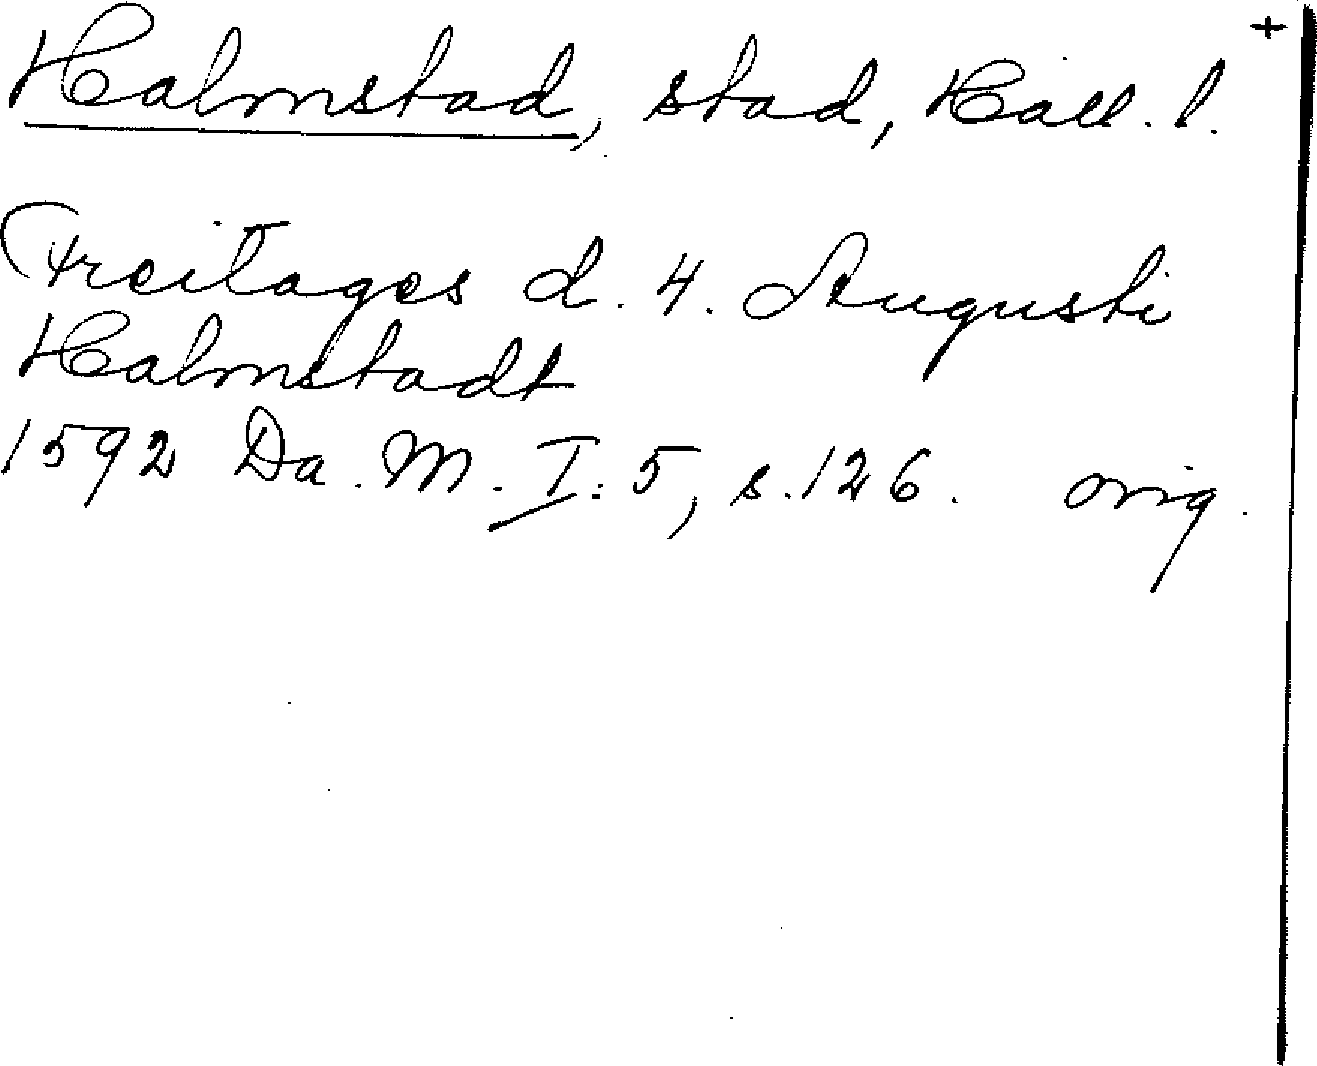 Halmstad, stad, Hall. l. +
Freitages d. 4. Augusti
Halmstadt
1592 Da. M. I: 5, s. 126. orig.